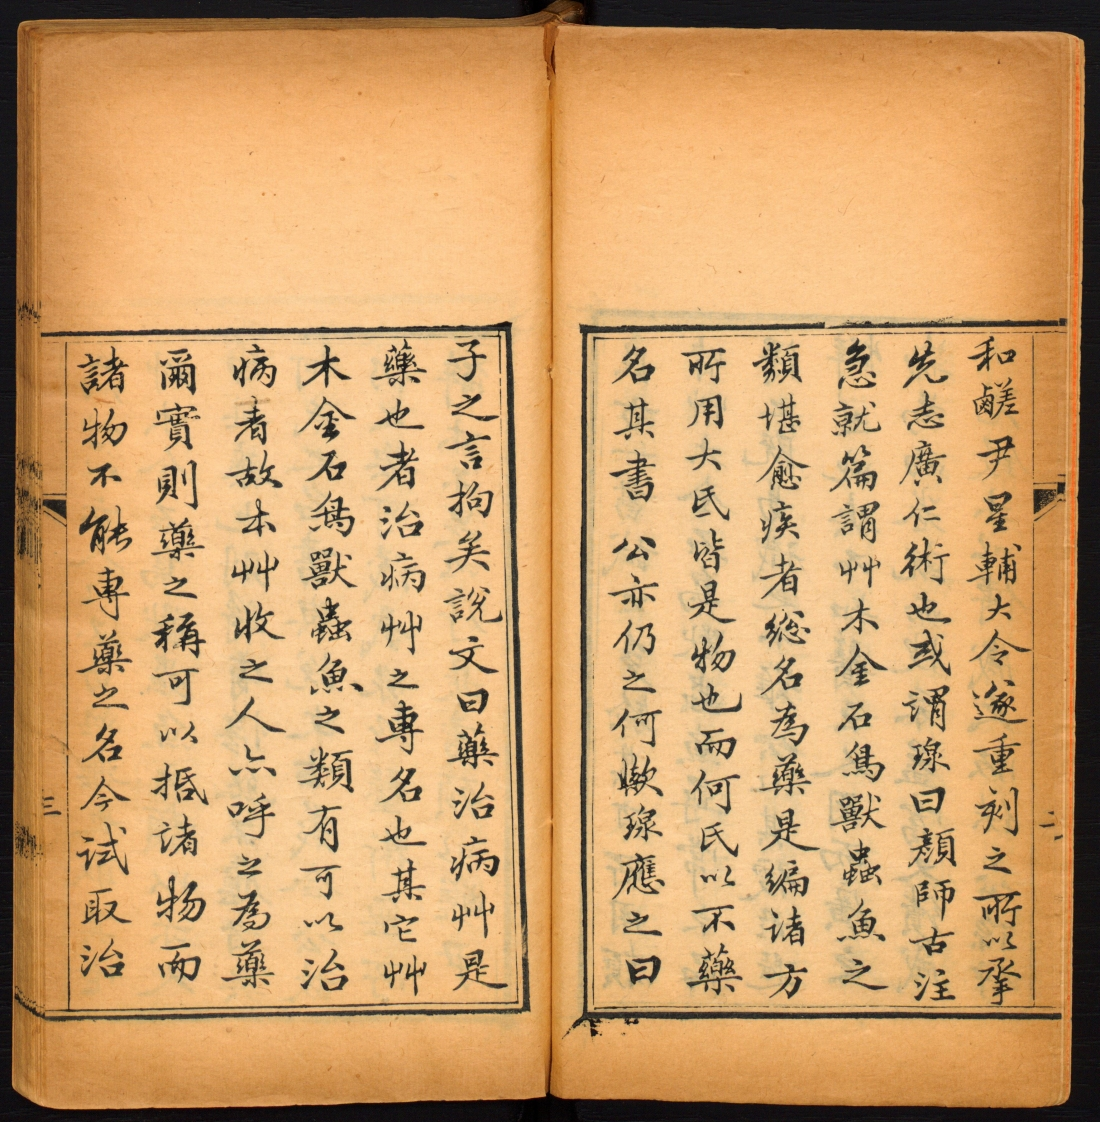 和鹺尹星輔大令遂重刻之所以承
先志廣仁術也或謂璟曰顏師古注
急就篇謂艸木金石鳥獸蟲魚之
類堪愈疾者總名為藥是編諸方
所用大氐皆是物也而何氏以不藥
名其書公亦仍之何歟璟應之曰
二
子之言拘矣說文曰藥治病艸是
藥也者治病艸之專名也其它艸
木金石鳥獸蟲魚之類有可以治
病者故本艸收之人亦呼之為藥
爾實則藥之稱可以抵諸物而
諸物不能專藥之名今試取治
三